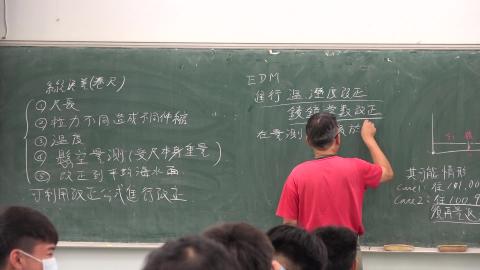 (卷尺)
① 尺長
② 拉力不同造成不同伸縮
③ 溫度
④ 懸空量測(受尺本身重量)
⑤ 改正到平均海水面
可利用改正公式進行改正
EDM
進行 溫溼度改正
稜鏡常數改正
在量測
其可能情形
Case 1: 在
Case 2: 在 100.9